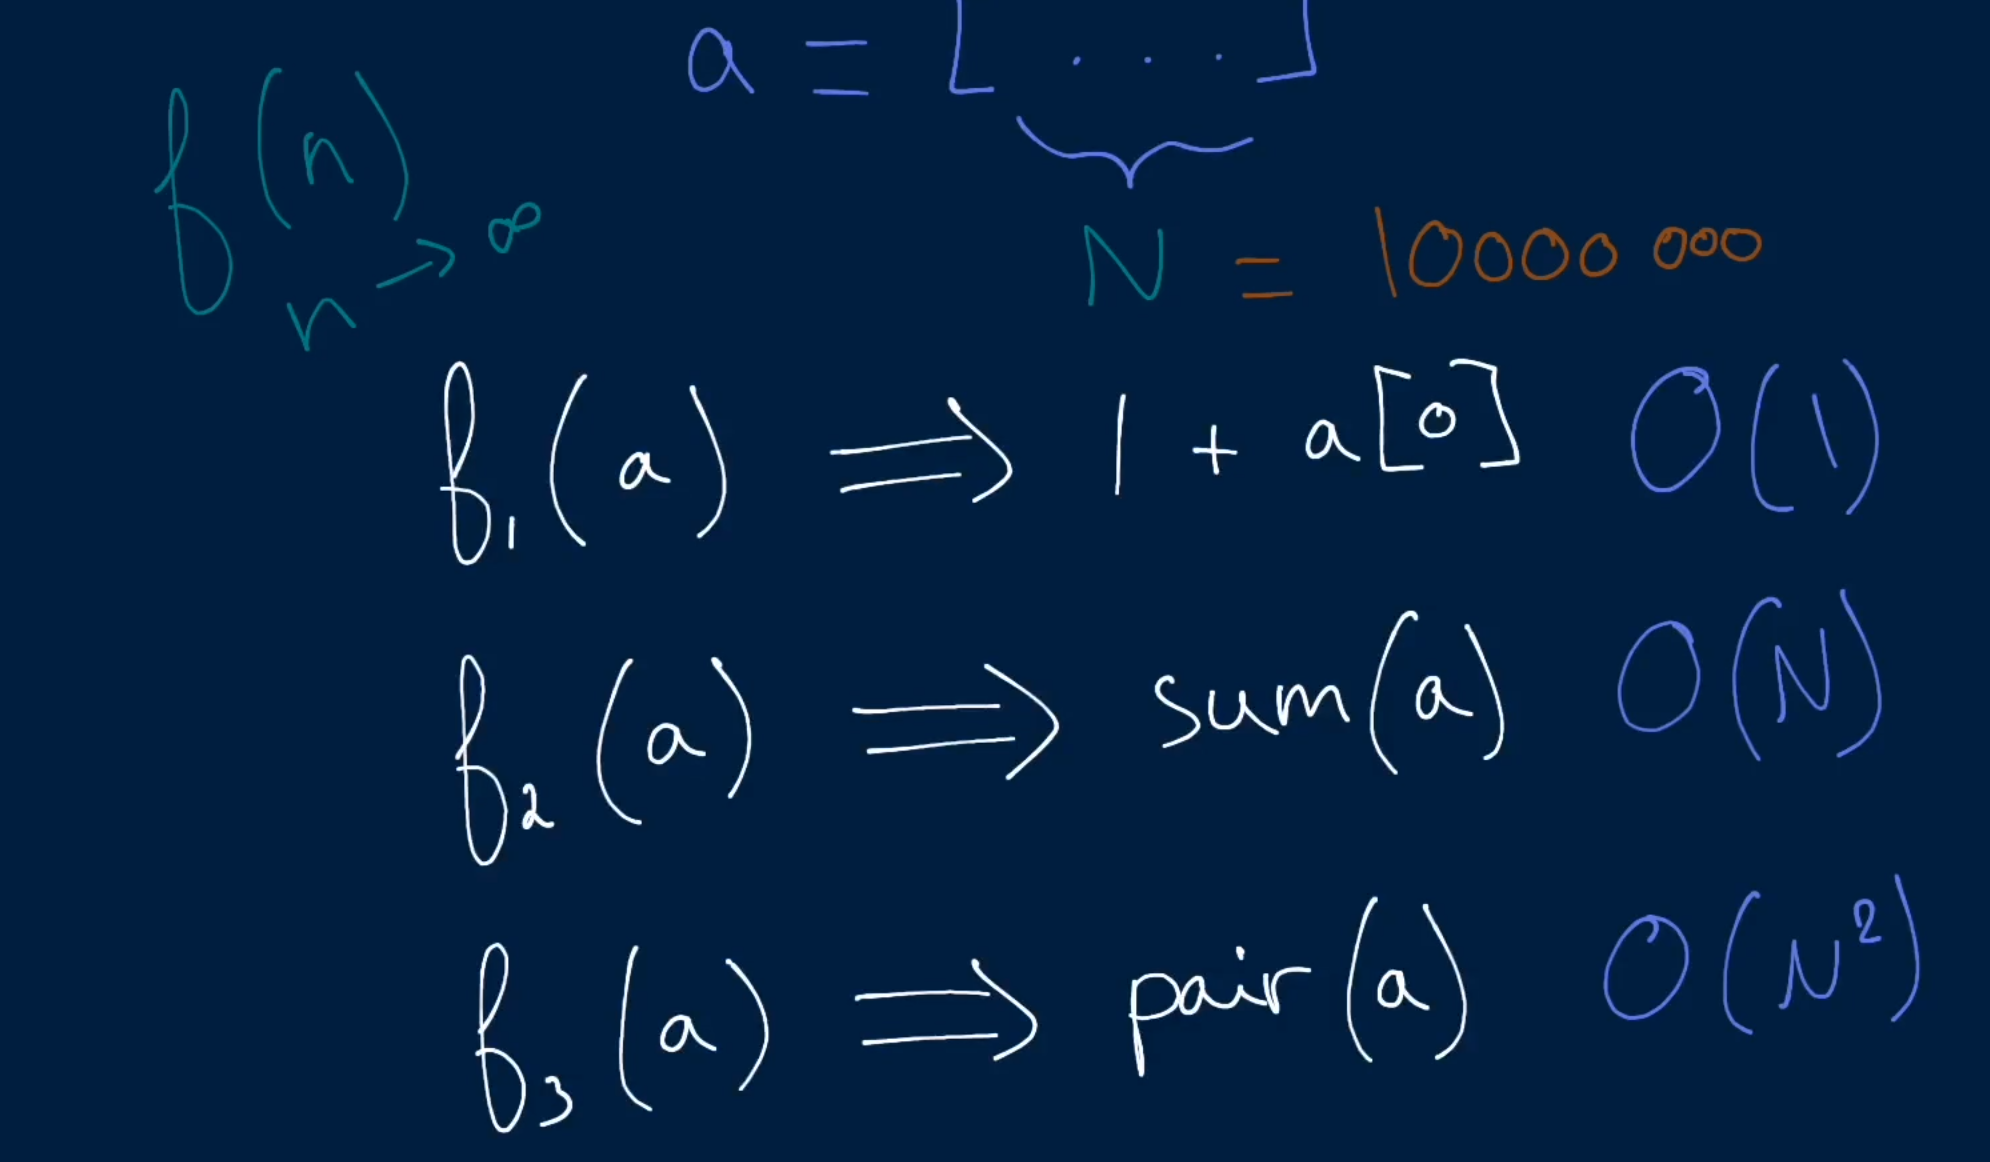 a = [ . . . ]
f(n)
n → ∞
N = 10000 000
f₁(a) ⟹ 1 + a[0] O(1)
f₂(a) ⟹ sum(a) O(N)
f₃(a) ⟹ pair(a) O(N²)